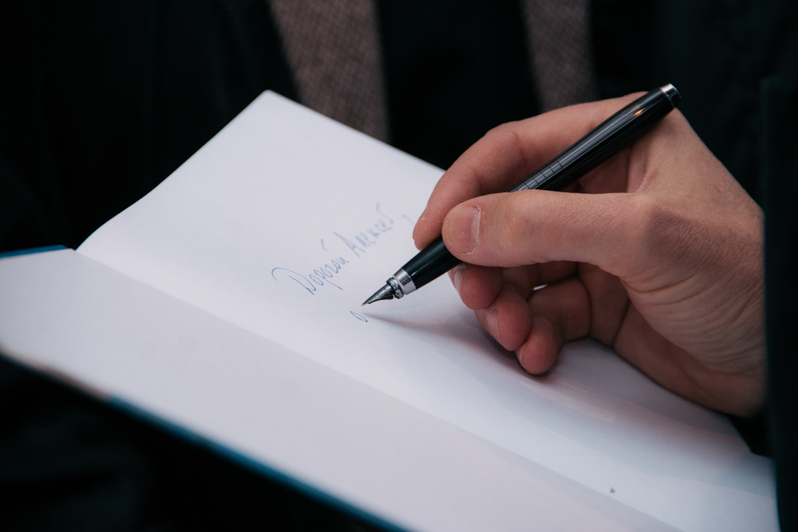 Дорогой Алексей